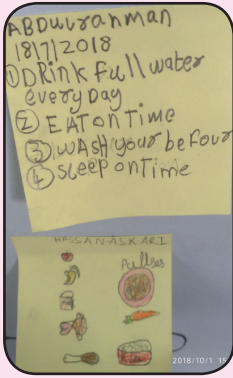 ABDULrahman
18/7/2018
① DRink Full water
everyDay
② EATonTime
③ WASH your befour
④ sleep onTime
HASSAN ASKARI
Pullses
2018/10/1 15